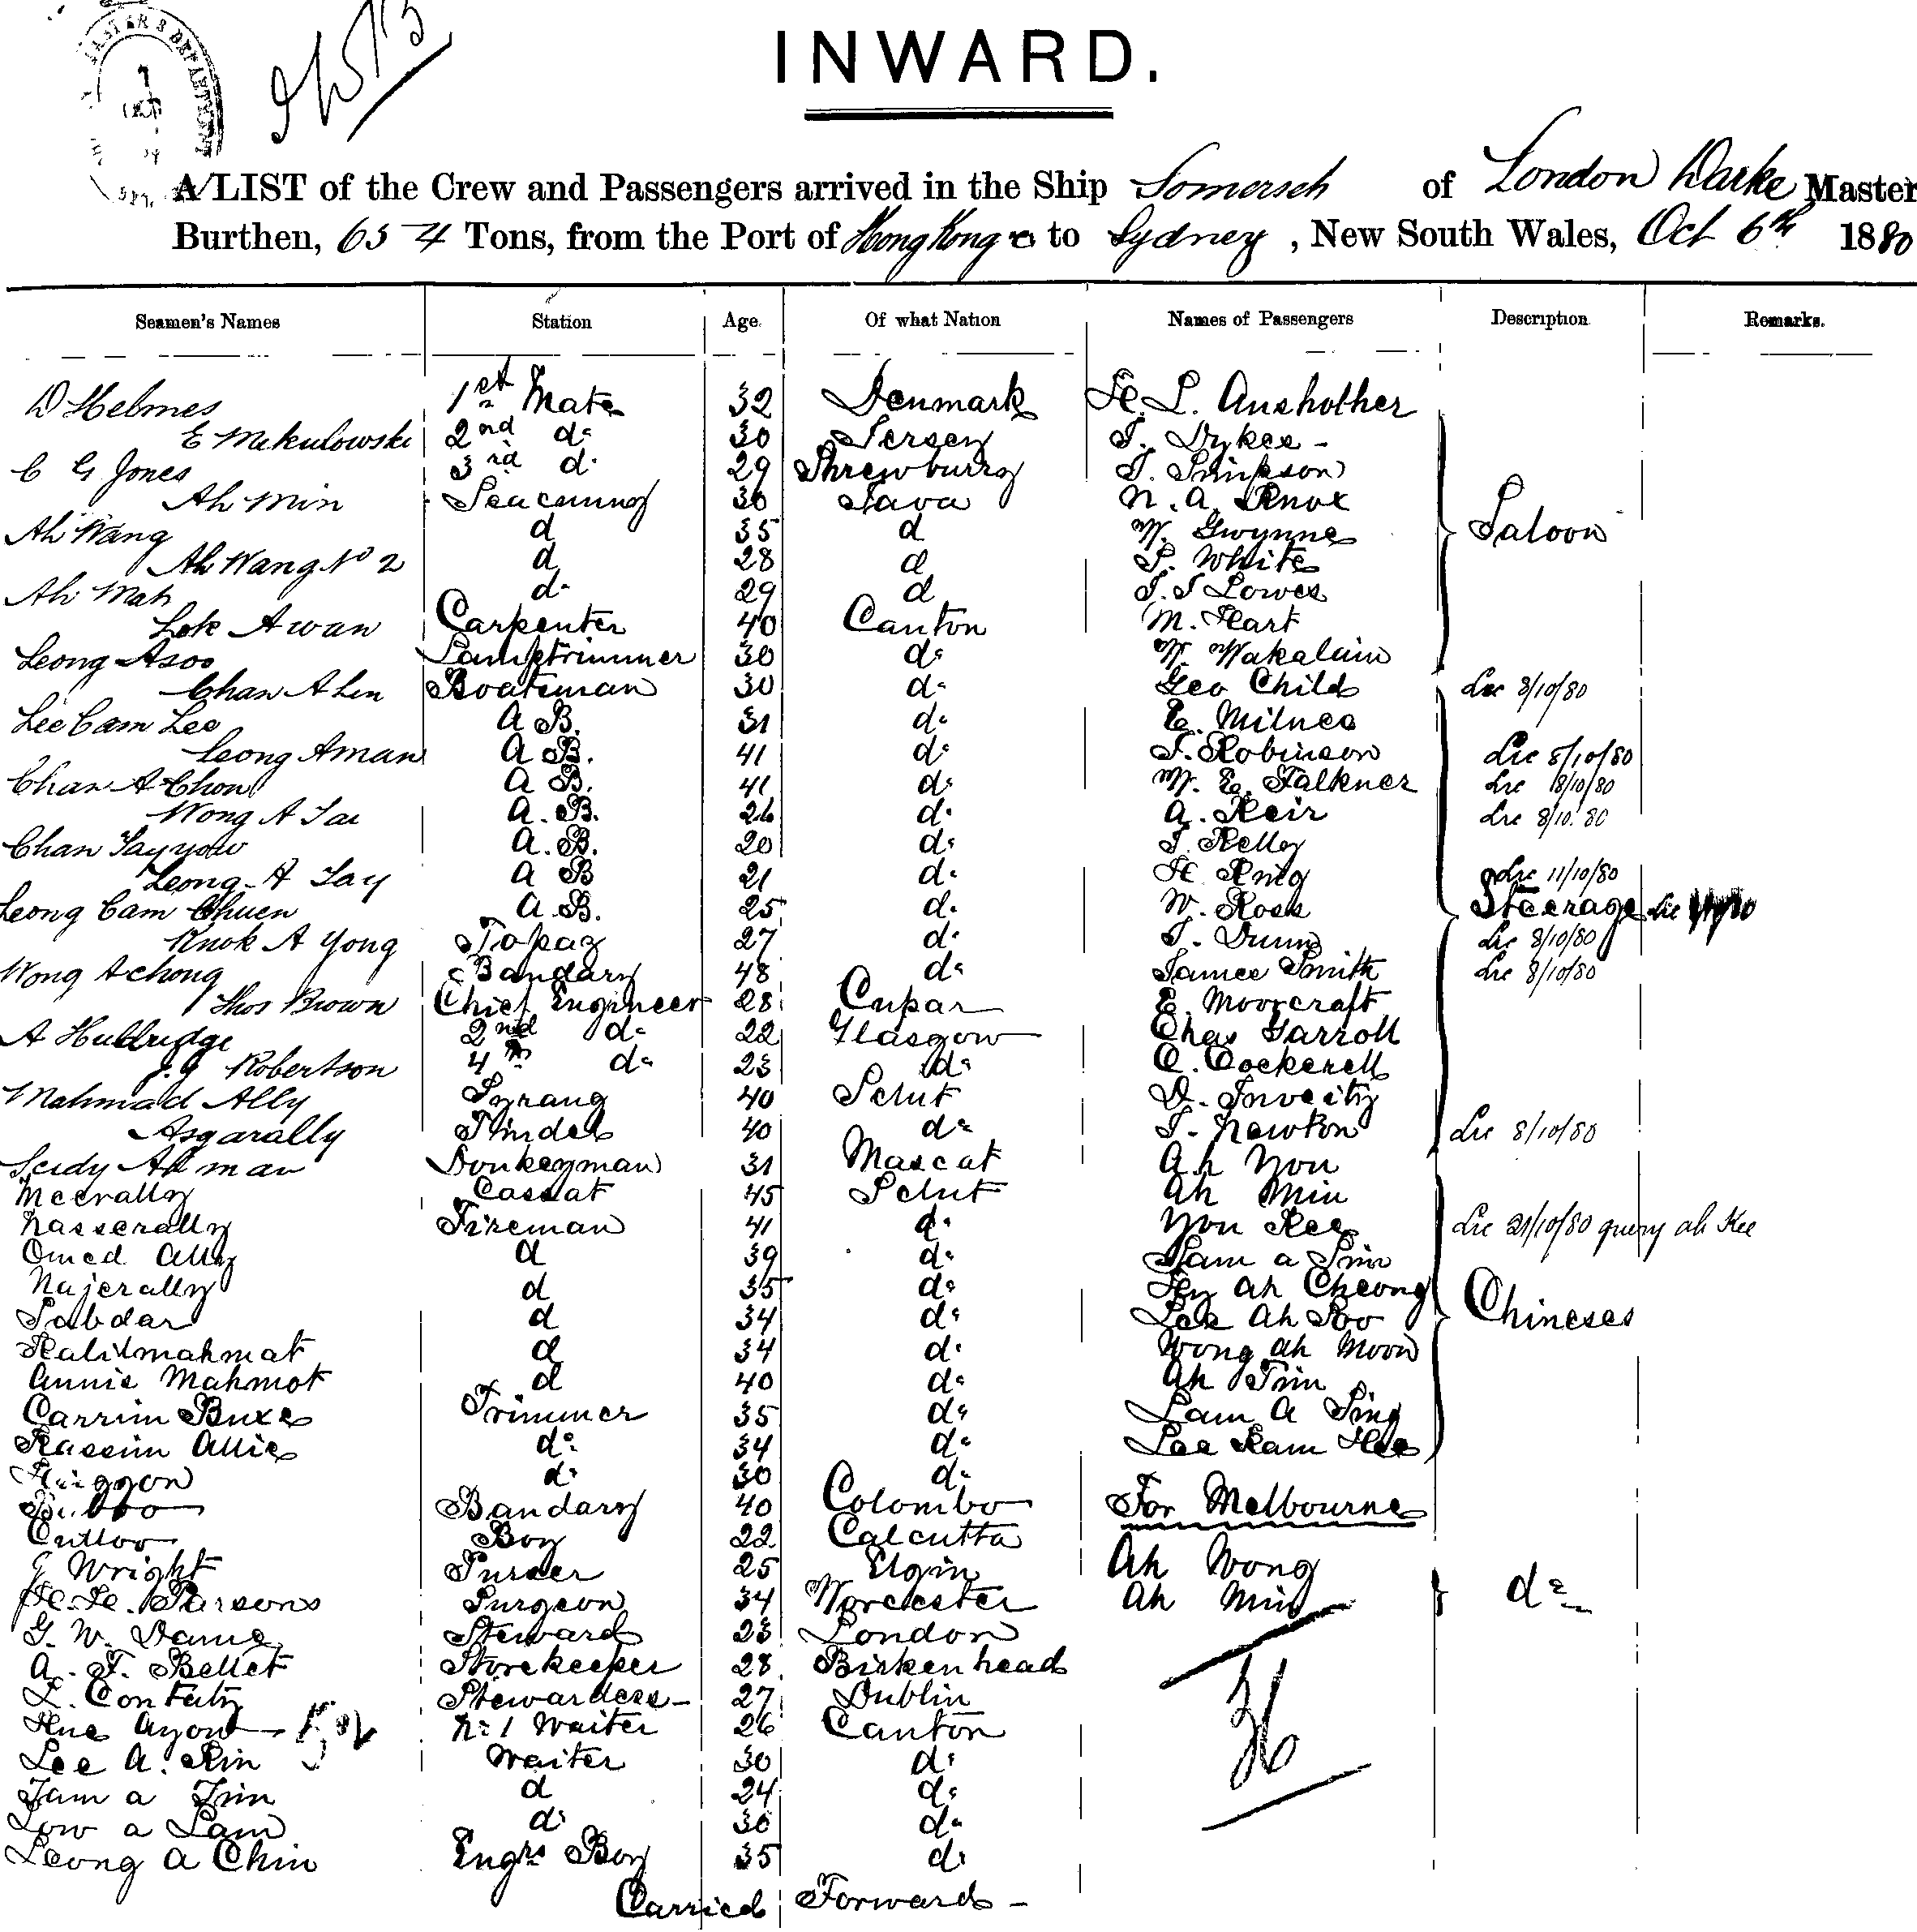 INWARD.
A LIST of the Crew and Passengers arrived in the Ship Somerset of London Darke Master
Burthen, 654 Tons, from the Port of Hong Kong to Sydney, New South Wales, Oct 6th 1880
Seamen's Names Station Age. Of what Nation Names of Passengers Description Remarks.
D Helmes 1st Mate 32 Denmark H. L.
E Mekulowski 2nd do 30 Jersey J. Dykes -
C G Jones 3rd do 29 Shrewsburry J. Simpson
Ah Min Seacunny 30 Java N. A. Knox
Ah Wang d 35 d W. Gwynne Saloon
Ah Wang No 2 d 28 d S. White
Ah Mah do 29 d J. J Lowes
Lok Awan Carpenter 40 Canton M. Hart
Leong Asoo Lamptrimmer 30 do W. Wakalain
Chan A Lin Boatsman 30 do Geo Child Lre 8/10/80
Lee Cam Lee A B. 31 do E. Milnes
Leong Aman A B. 41 do J. Robinson Lre 8/10/80
Chan A Chon A B. 41 do W. E. Falkner Lre 8/10/80
Wong A Tai A. B. 26 do A. Keir Lre 8/10.80
Chan Tayyow A. B. 20 do J. Kelly
Leong A Tay A B 21 do H. King Lre 11/10/80
Leong Cam Chuen A. B. 25 do W. Ross Steerage Lre
Knok A Yong Topaz 27 do J. Dunn Lre 8/10/80
Wong Achong Bandary 48 do James Smith Lre 8/10/80
Thos Brown Chief Engineer 28 Cupar E. Moorcraft
A Huldridge 2nd do 22 Glasgow Chas Garroll
J. G Robertson 4th do 23 do C. Cockerell
Mahmad Ally Syrang 40 Schut D. Inveity
Asgarally Thindel 40 do J. Newton Lre 8/10/80
Seidy Ahman Donkeyman 31 Mascat Ah You
Meerally Cassat 45 Schut Ah Min
Nasserally Fireman 41 do You Kee Lre 21/10/80 query ah Kee
Omed Ally d 39 do Sam a Sim
Najerally d 35 do Hy Ah Cheong
Sabdar d 34 do Lee Ah Soo Chineses
Kalilmahmat d 34 do Wong Ah Moon
Annis Mahmot d 40 do Ah Tim
Carrim Buxe Trimmer 35 do Lam A Sing
Kassim Allie do 34 do Lee Kam Hee
do 30 do
Bandary 40 Colombo For Melbourne
Cuttoo Boy 22 Calcutta
G Wright Purser 25 Elgin Ah Wong
H. H. Parsons Surgeon 34 Worcester Ah Min do
G. W. Dame Steward 23 London
A. F. Bellet Storekeeper 28 Birkenhead
L. Confaty Stewardess - 27 Dublin 36
Hue Ayow No 1 Waiter 26 Canton
Lee A. Kin Waiter 30 do
Tam a Tim d 24 do
Low a Lam do 30 do
Leong A Chin Engrs Boy 35 do
Carried Forward -